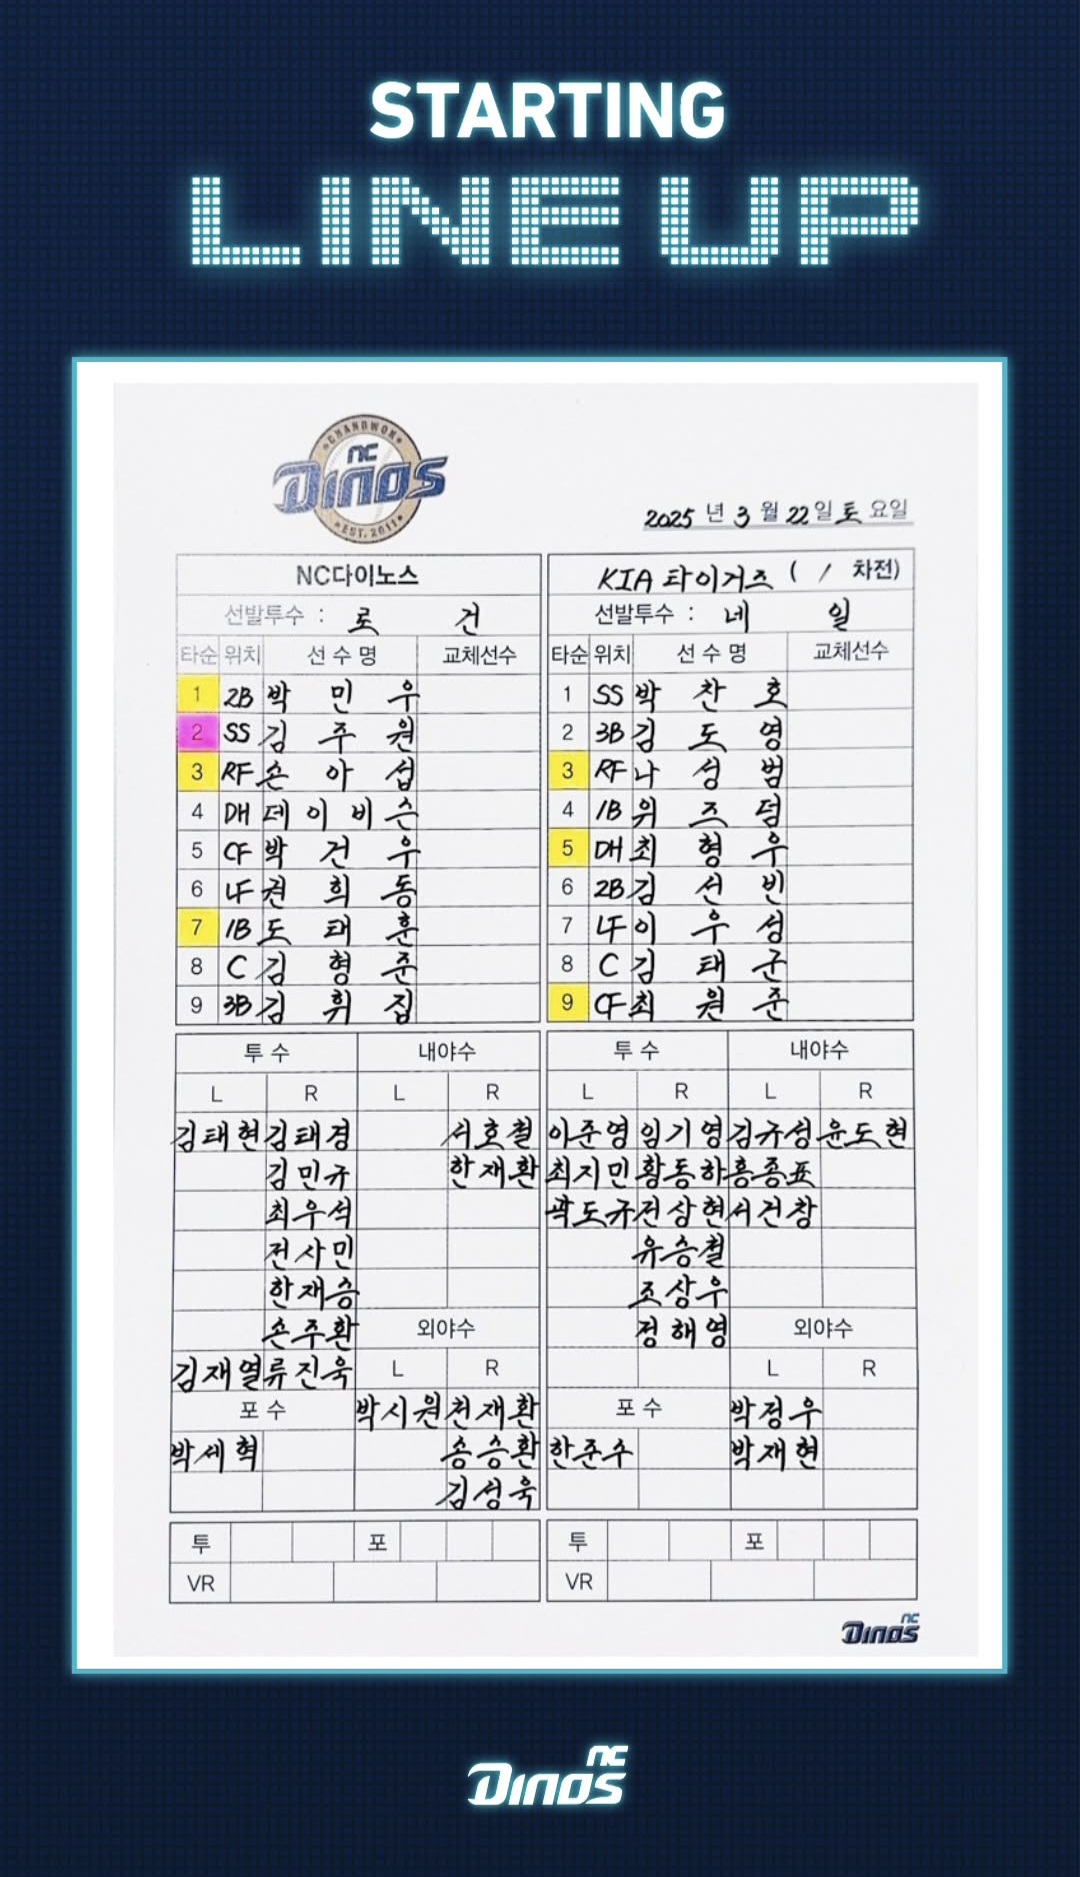 STARTING
LINE UP
CHANGWON
NC
DINOS
EST. 2011
2025 년 3 월 22 일 토 요일
NC다이노스
선발투수 : 로 건
타순 위치 선수명 교체선수
1 2B 박민우
2 SS 김주원
3 RF 손아섭
4 DH 데이비슨
5 CF 박건우
6 LF 권희동
7 1B 도태훈
8 C 김형준
9 3B 김휘집
KIA 타이거즈 ( / 차전)
선발투수 : 네 일
타순 위치 선수명 교체선수
1 SS 박찬호
2 3B 김도영
3 RF 나성범
4 1B 위즈덤
5 DH 최형우
6 2B 김선빈
7 LF 이우성
8 C 김태군
9 CF 최원준
투수 내야수
L R L R
김태현 김태경 서호철
김민규 한재환
최우석
전사민
한재승
손주환 외야수
김재열 류진욱 L R
포수 박시원 천재환
박세혁 송승환
김성욱
투 포
VR
투수 내야수
L R L R
이준영 임기영 김규성 윤도현
최지민 황동하 홍종표
곽도규 전상현 서건창
유승철
조상우
정해영 외야수
L R
포수 박정우
한준수 박재현
투 포
VR
NC
DINOS
NC
DINOS